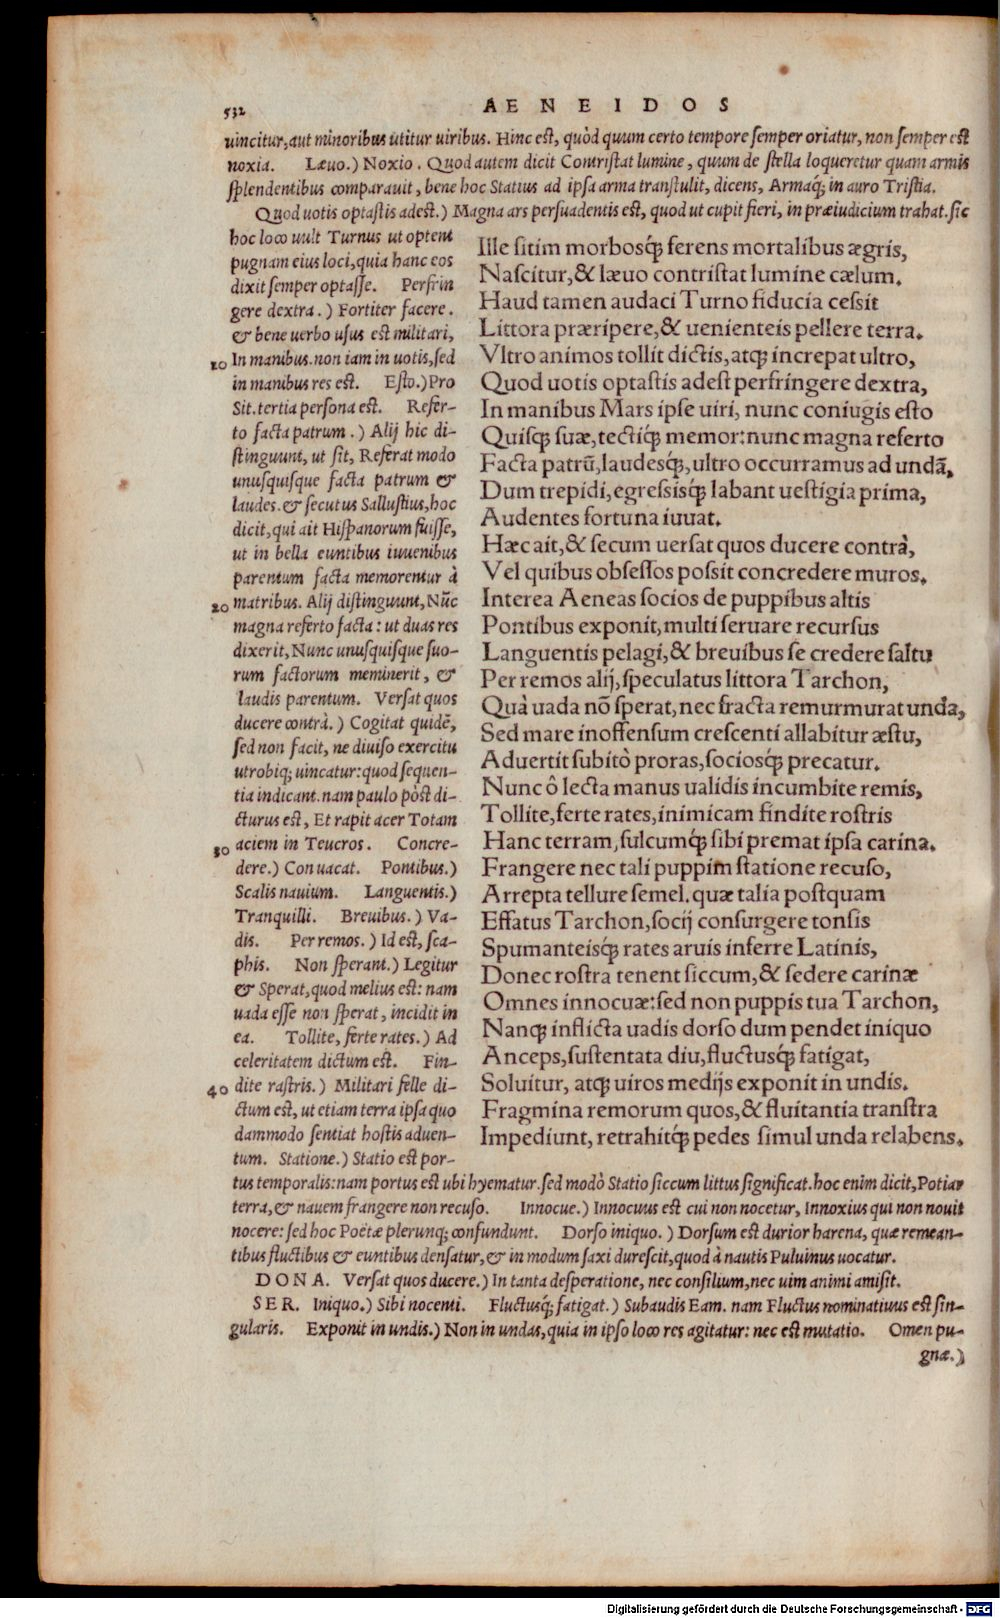 532
AENEIDOS
uincitur, aut minoribus utitur uiribus. Hinc est, quòd quum certo tempore semper oriatur, non semper est
noxia. Læuo.) Noxio. Quod autem dicit Contristat lumine, quum de stella loqueretur quam armis
splendentibus comparauit, bene hoc Statius ad ipsa arma transtulit, dicens, Armaq́; in auro Tristia.
Quod uotis optastis adest.) Magna ars persuadentis est, quod ut cupit fieri, in præiudicium trahat. sic
hoc loco uult Turnus ut optent
pugnam eius loci, quia hanc eos
dixit semper optasse. Perfrin
gere dextra.) Fortiter facere.
& bene uerbo usus est militari,
10 In manibus. non iam in uotis, sed
in manibus res est. Esto.) Pro
Sit. tertia persona est. Refer-
to facta patrum.) Alij hic di-
stinguunt, ut sit, Referat modo
unusquisque facta patrum &
laudes. & secutus Sallustius, hoc
dicit, qui ait Hispanorum fuisse,
ut in bella euntibus iuuenibus
parentum facta memorentur à
20 matribus. Alij distinguunt, Nūc
magna referto facta: ut duas res
dixerit, Nunc unusquisque suo-
rum factorum meminerit, &
laudis parentum. Versat quos
ducere contrà.) Cogitat quidē,
sed non facit, ne diuiso exercitu
utrobiq; uincatur: quod sequen-
tia indicant. nam paulo pòst di-
cturus est, Et rapit acer Totam
30 aciem in Teucros. Concre-
dere.) Con uacat. Pontibus.)
Scalis nauium. Languentis.)
Tranquilli. Breuibus.) Va-
dis. Per remos.) Id est, sca-
phis. Non sperant.) Legitur
& Sperat, quod melius est: nam
uada esse non sperat, incidit in
ea. Tollite, ferte rates.) Ad
celeritatem dictum est. Fin-
40 dite rastris.) Militari felle di-
ctum est, ut etiam terra ipsa quo
dammodo sentiat hostis aduen-
tum. Statione.) Statio est por-
Ille sitim morbosq́; ferens mortalibus ægris,
Nascitur, & læuo contristat lumine cælum.
Haud tamen audaci Turno fiducia cessit
Littora præripere, & uenienteis pellere terra.
Vltro animos tollit dictis, atq; increpat ultro,
Quod uotis optastis adest perfringere dextra,
In manibus Mars ipse uiri, nunc coniugis esto
Quisq; suæ, tectiq́; memor: nunc magna referto
Facta patrū, laudesq́;, ultro occurramus ad undā,
Dum trepidi, egressisq́; labant uestigia prima,
Audentes fortuna iuuat.
Hæc ait, & secum uersat quos ducere contrà,
Vel quibus obsessos possit concredere muros.
Interea Aeneas socios de puppibus altis
Pontibus exponit, multi seruare recursus
Languentis pelagi, & breuibus se credere saltu
Per remos alij, speculatus littora Tarchon,
Quà uada nō sperat, nec fracta remurmurat unda,
Sed mare inoffensum crescenti allabitur æstu,
Aduertit subitò proras, sociosq́; precatur.
Nunc ô lecta manus ualidis incumbite remis,
Tollite, ferte rates, inimicam findite rostris
Hanc terram, sulcumq́; sibi premat ipsa carina.
Frangere nec tali puppim statione recuso,
Arrepta tellure semel. quæ talia postquam
Effatus Tarchon, socij consurgere tonsis
Spumanteisq́; rates aruis inferre Latinis,
Donec rostra tenent siccum, & sedere carinæ
Omnes innocuæ: sed non puppis tua Tarchon,
Nanq; inflicta uadis dorso dum pendet iniquo
Anceps, sustentata diu, fluctusq́; fatigat,
Soluitur, atq; uiros medijs exponit in undis.
Fragmina remorum quos, & fluitantia transtra
Impediunt, retrahitq́; pedes simul unda relabens.
tus temporalis: nam portus est ubi hyematur. sed modò Statio siccum littus significat. hoc enim dicit, Potiar
terra, & nauem frangere non recuso. Innocue.) Innocuus est cui non nocetur, Innoxius qui non nouit
nocere: sed hoc Poëtæ plerunq; confundunt. Dorso iniquo.) Dorsum est durior harena, quæ remean-
tibus fluctibus & euntibus densatur, & in modum saxi durescit, quod à nautis Puluinus uocatur.
DONA. Versat quos ducere.) In tanta desperatione, nec consilium, nec uim animi amisit.
SER. Iniquo.) Sibi nocenti. Fluctusq́; fatigat.) Subaudis Eam. nam Fluctus nominatiuus est sin-
gularis. Exponit in undis.) Non in undas, quia in ipso loco res agitatur: nec est mutatio. Omen pu-
gnæ.)
Digitalisierung gefördert durch die Deutsche Forschungsgemeinschaft - DFG